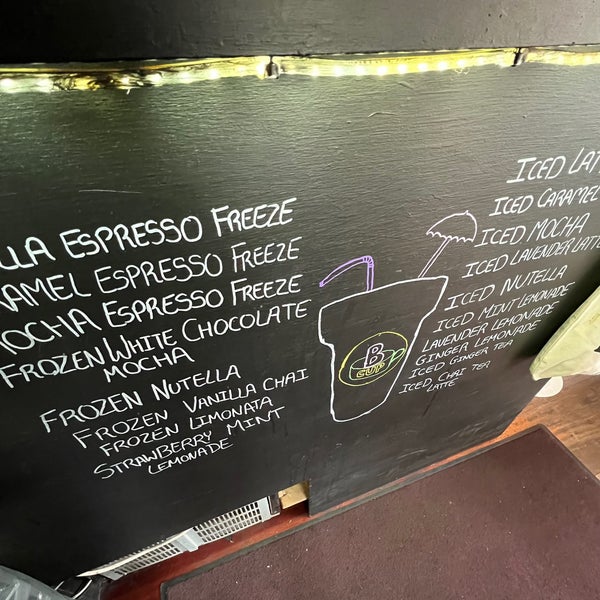 LLA ESPRESSO FREEZE
RAMEL ESPRESSO FREEZE
MOCHA ESPRESSO FREEZE
FROZEN WHITE CHOCOLATE
MOCHA
FROZEN NUTELLA
FROZEN VANILLA CHAI
FROZEN LIMONATA
STRAWBERRY MINT
LEMONADE
B
CUP
ICED LAT
ICED CARAMEL
ICED MOCHA
ICED LAVENDER LATTE
ICED NUTELLA
ICED MINT LEMONADE
LAVENDER LEMONADE
GINGER LEMONADE
ICED GINGER TEA
ICED CHAI TEA
LATTE